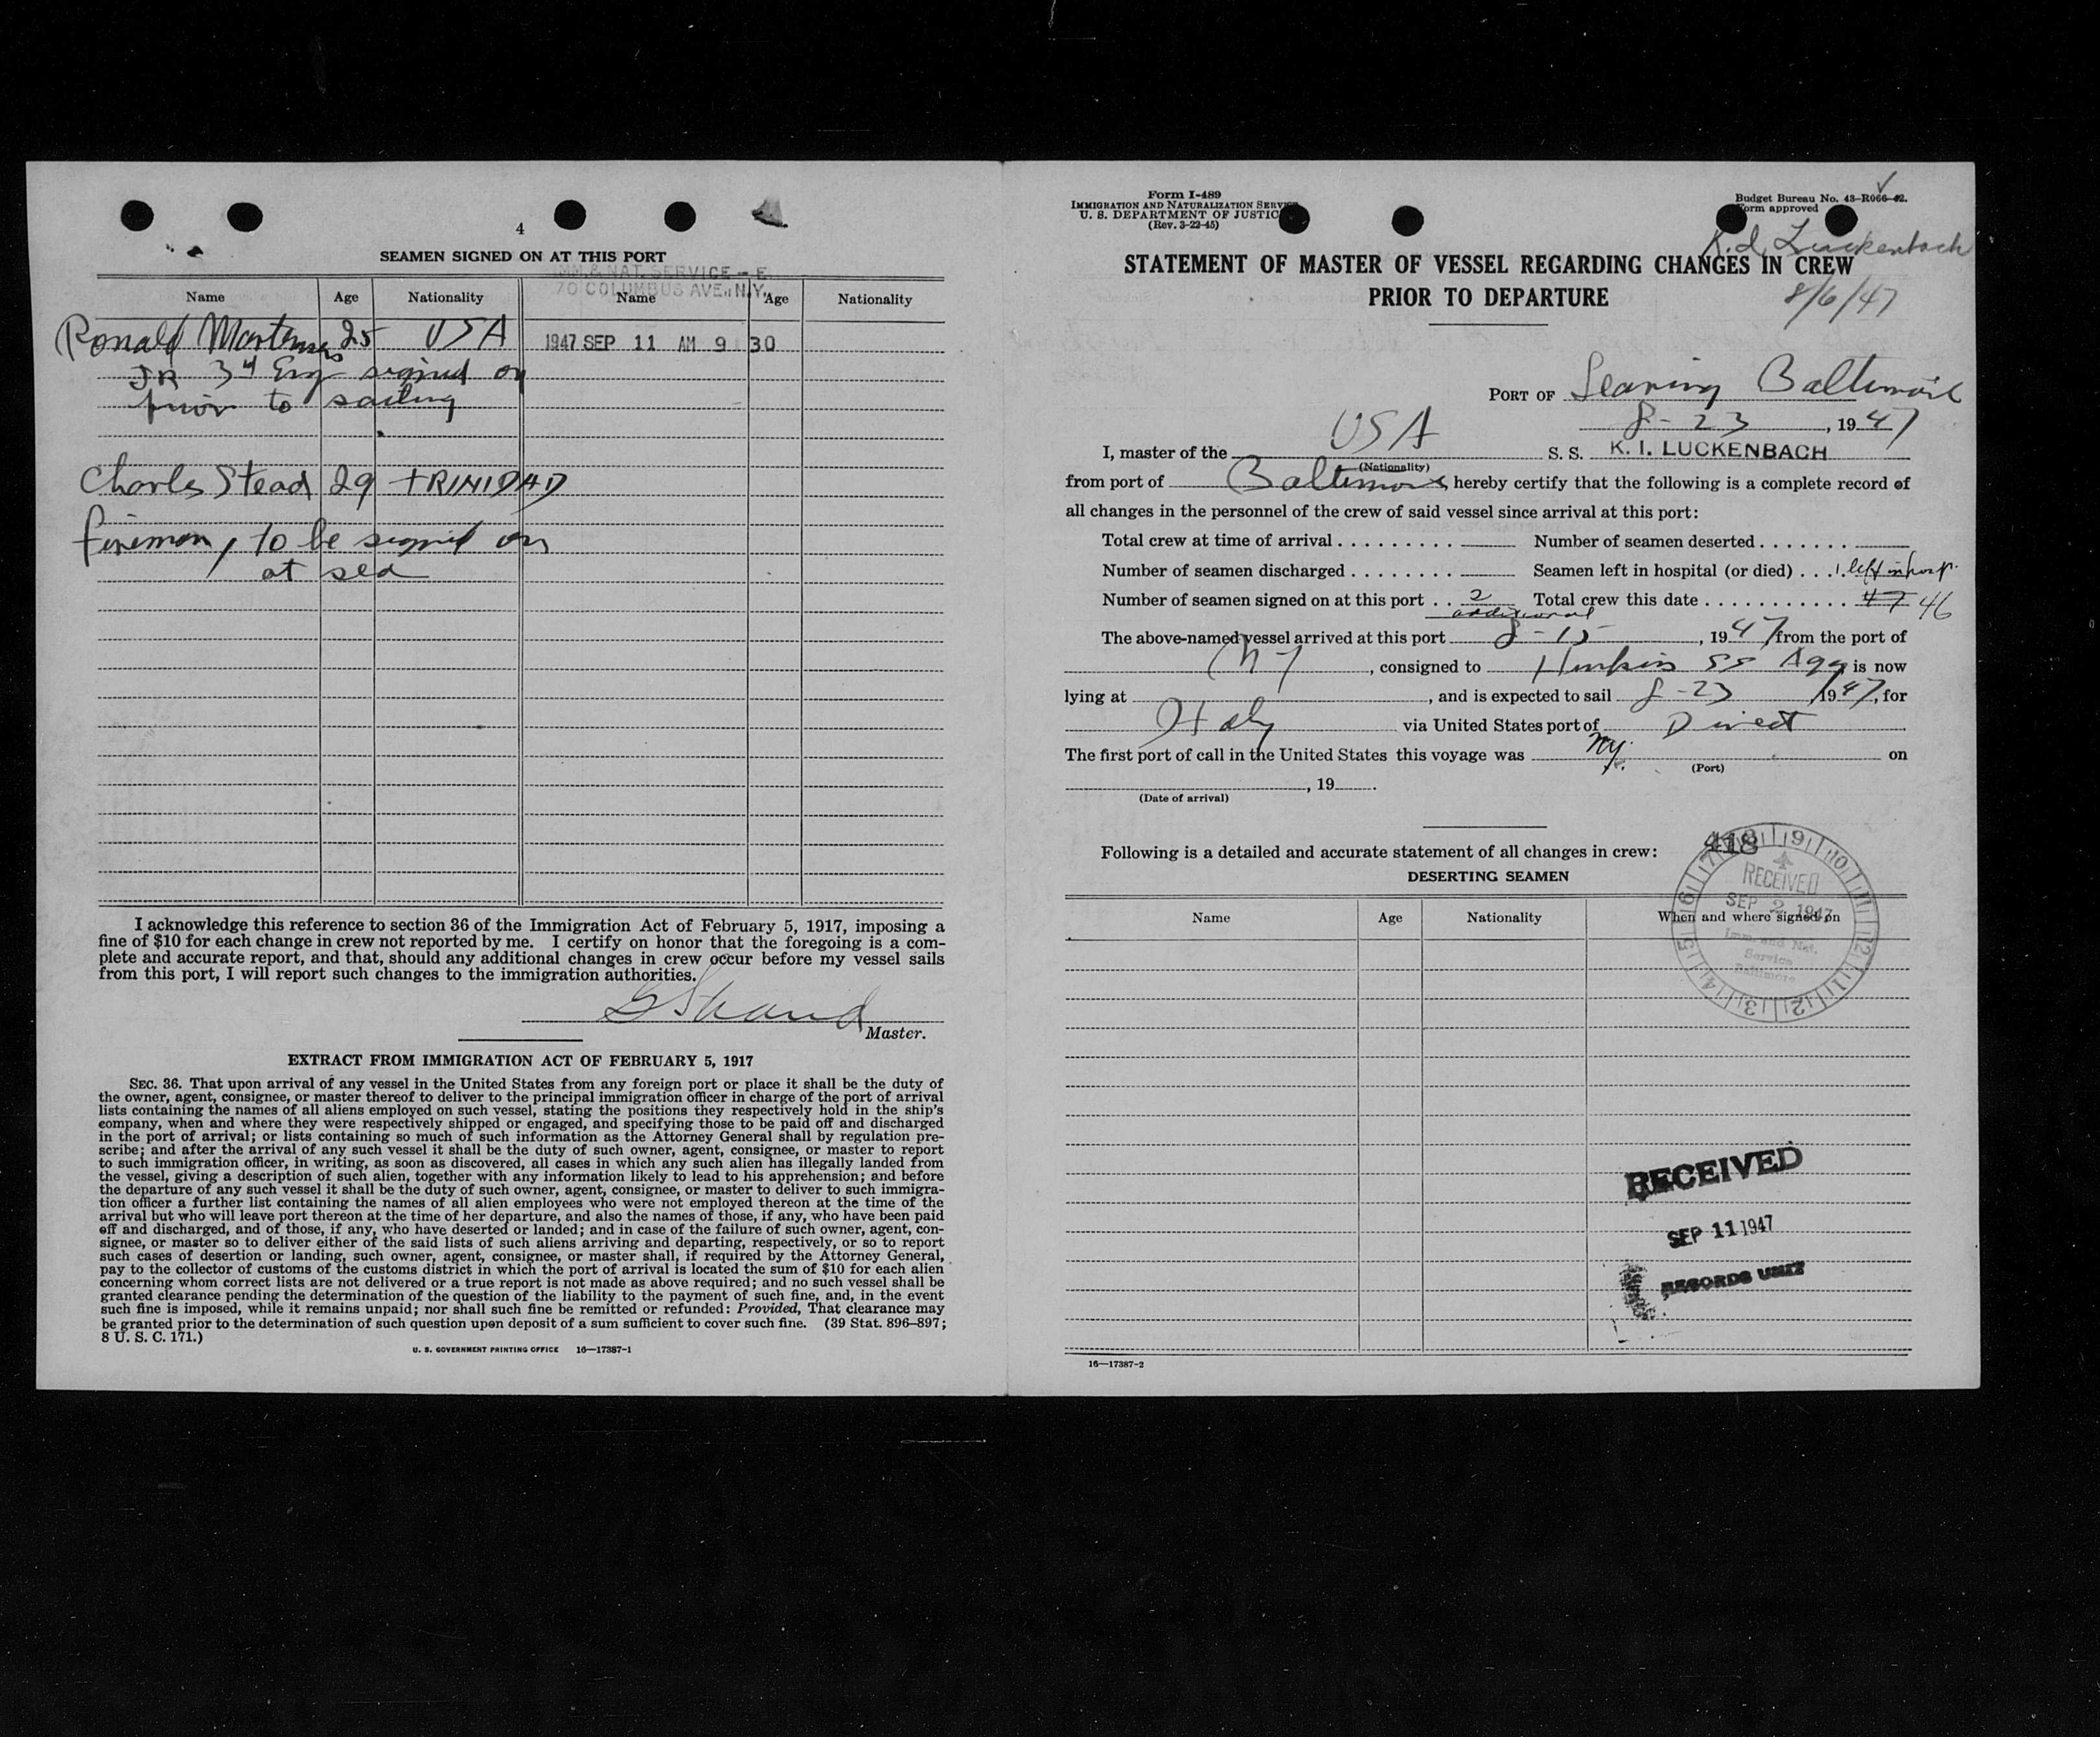 4
SEAMEN SIGNED ON AT THIS PORT
IMM & NAT. SERVICE - E.
70 COLUMBUS AVE., N.Y.
Name Age Nationality Name Age Nationality
Ronald 25 USA 1947 SEP 11 AM 9 30
JR 3d Eng signed on
prior to sailing
Charles Stead 29 TRINIDAD
fireman, to be signed on
at sea
I acknowledge this reference to section 36 of the Immigration Act of February 5, 1917, imposing a
fine of $10 for each change in crew not reported by me. I certify on honor that the foregoing is a com-
plete and accurate report, and that, should any additional changes in crew occur before my vessel sails
from this port, I will report such changes to the immigration authorities.
Master.
EXTRACT FROM IMMIGRATION ACT OF FEBRUARY 5, 1917
SEC. 36. That upon arrival of any vessel in the United States from any foreign port or place it shall be the duty of
the owner, agent, consignee, or master thereof to deliver to the principal immigration officer in charge of the port of arrival
lists containing the names of all aliens employed on such vessel, stating the positions they respectively hold in the ship's
company, when and where they were respectively shipped or engaged, and specifying those to be paid off and discharged
in the port of arrival; or lists containing so much of such information as the Attorney General shall by regulation pre-
scribe; and after the arrival of any such vessel it shall be the duty of such owner, agent, consignee, or master to report
to such immigration officer, in writing, as soon as discovered, all cases in which any such alien has illegally landed from
the vessel, giving a description of such alien, together with any information likely to lead to his apprehension; and before
the departure of any such vessel it shall be the duty of such owner, agent, consignee, or master to deliver to such immigra-
tion officer a further list containing the names of all alien employees who were not employed thereon at the time of the
arrival but who will leave port thereon at the time of her departure, and also the names of those, if any, who have been paid
off and discharged, and of those, if any, who have deserted or landed; and in case of the failure of such owner, agent, con-
signee, or master so to deliver either of the said lists of such aliens arriving and departing, respectively, or so to report
such cases of desertion or landing, such owner, agent, consignee, or master shall, if required by the Attorney General,
pay to the collector of customs of the customs district in which the port of arrival is located the sum of $10 for each alien
concerning whom correct lists are not delivered or a true report is not made as above required; and no such vessel shall be
granted clearance pending the determination of the question of the liability to the payment of such fine, and, in the event
such fine is imposed, while it remains unpaid; nor shall such fine be remitted or refunded: Provided, That clearance may
be granted prior to the determination of such question upon deposit of a sum sufficient to cover such fine. (39 Stat. 896–897;
8 U. S. C. 171.)
U. S. GOVERNMENT PRINTING OFFICE 16—17387-1
Form I-489
IMMIGRATION AND NATURALIZATION SERVICE
U. S. DEPARTMENT OF JUSTICE
(Rev. 3-22-45)
Budget Bureau No. 43-R066-42.
Form approved
K. I. Luckenbach
8/6/47
STATEMENT OF MASTER OF VESSEL REGARDING CHANGES IN CREW
PRIOR TO DEPARTURE
PORT OF Leaving Baltimore
8-23, 1947
I, master of the USA S. S. K. I. LUCKENBACH
(Nationality)
from port of Baltimore hereby certify that the following is a complete record of
all changes in the personnel of the crew of said vessel since arrival at this port:
Total crew at time of arrival . . . . . . . . . . Number of seamen deserted . . . . . . .
Number of seamen discharged . . . . . . . . Seamen left in hospital (or died) . . . 1 left in hosp.
Number of seamen signed on at this port . . 2 Total crew this date . . . . . . . . . . . . 47 46
additional
The above-named vessel arrived at this port 8-15, 1947 from the port of
NY, consigned to SS is now
lying at , and is expected to sail 8-23 1947, for
Italy via United States port of Direct
The first port of call in the United States this voyage was NY. on
(Port)
, 19 .
(Date of arrival)
Following is a detailed and accurate statement of all changes in crew:
DESERTING SEAMEN
Name Age Nationality When and where signed on
RECEIVED
SEP 2 1947
Imm. and Nat.
Service
Baltimore
RECEIVED
SEP 11 1947
RECORDS UNIT
16—17387-2